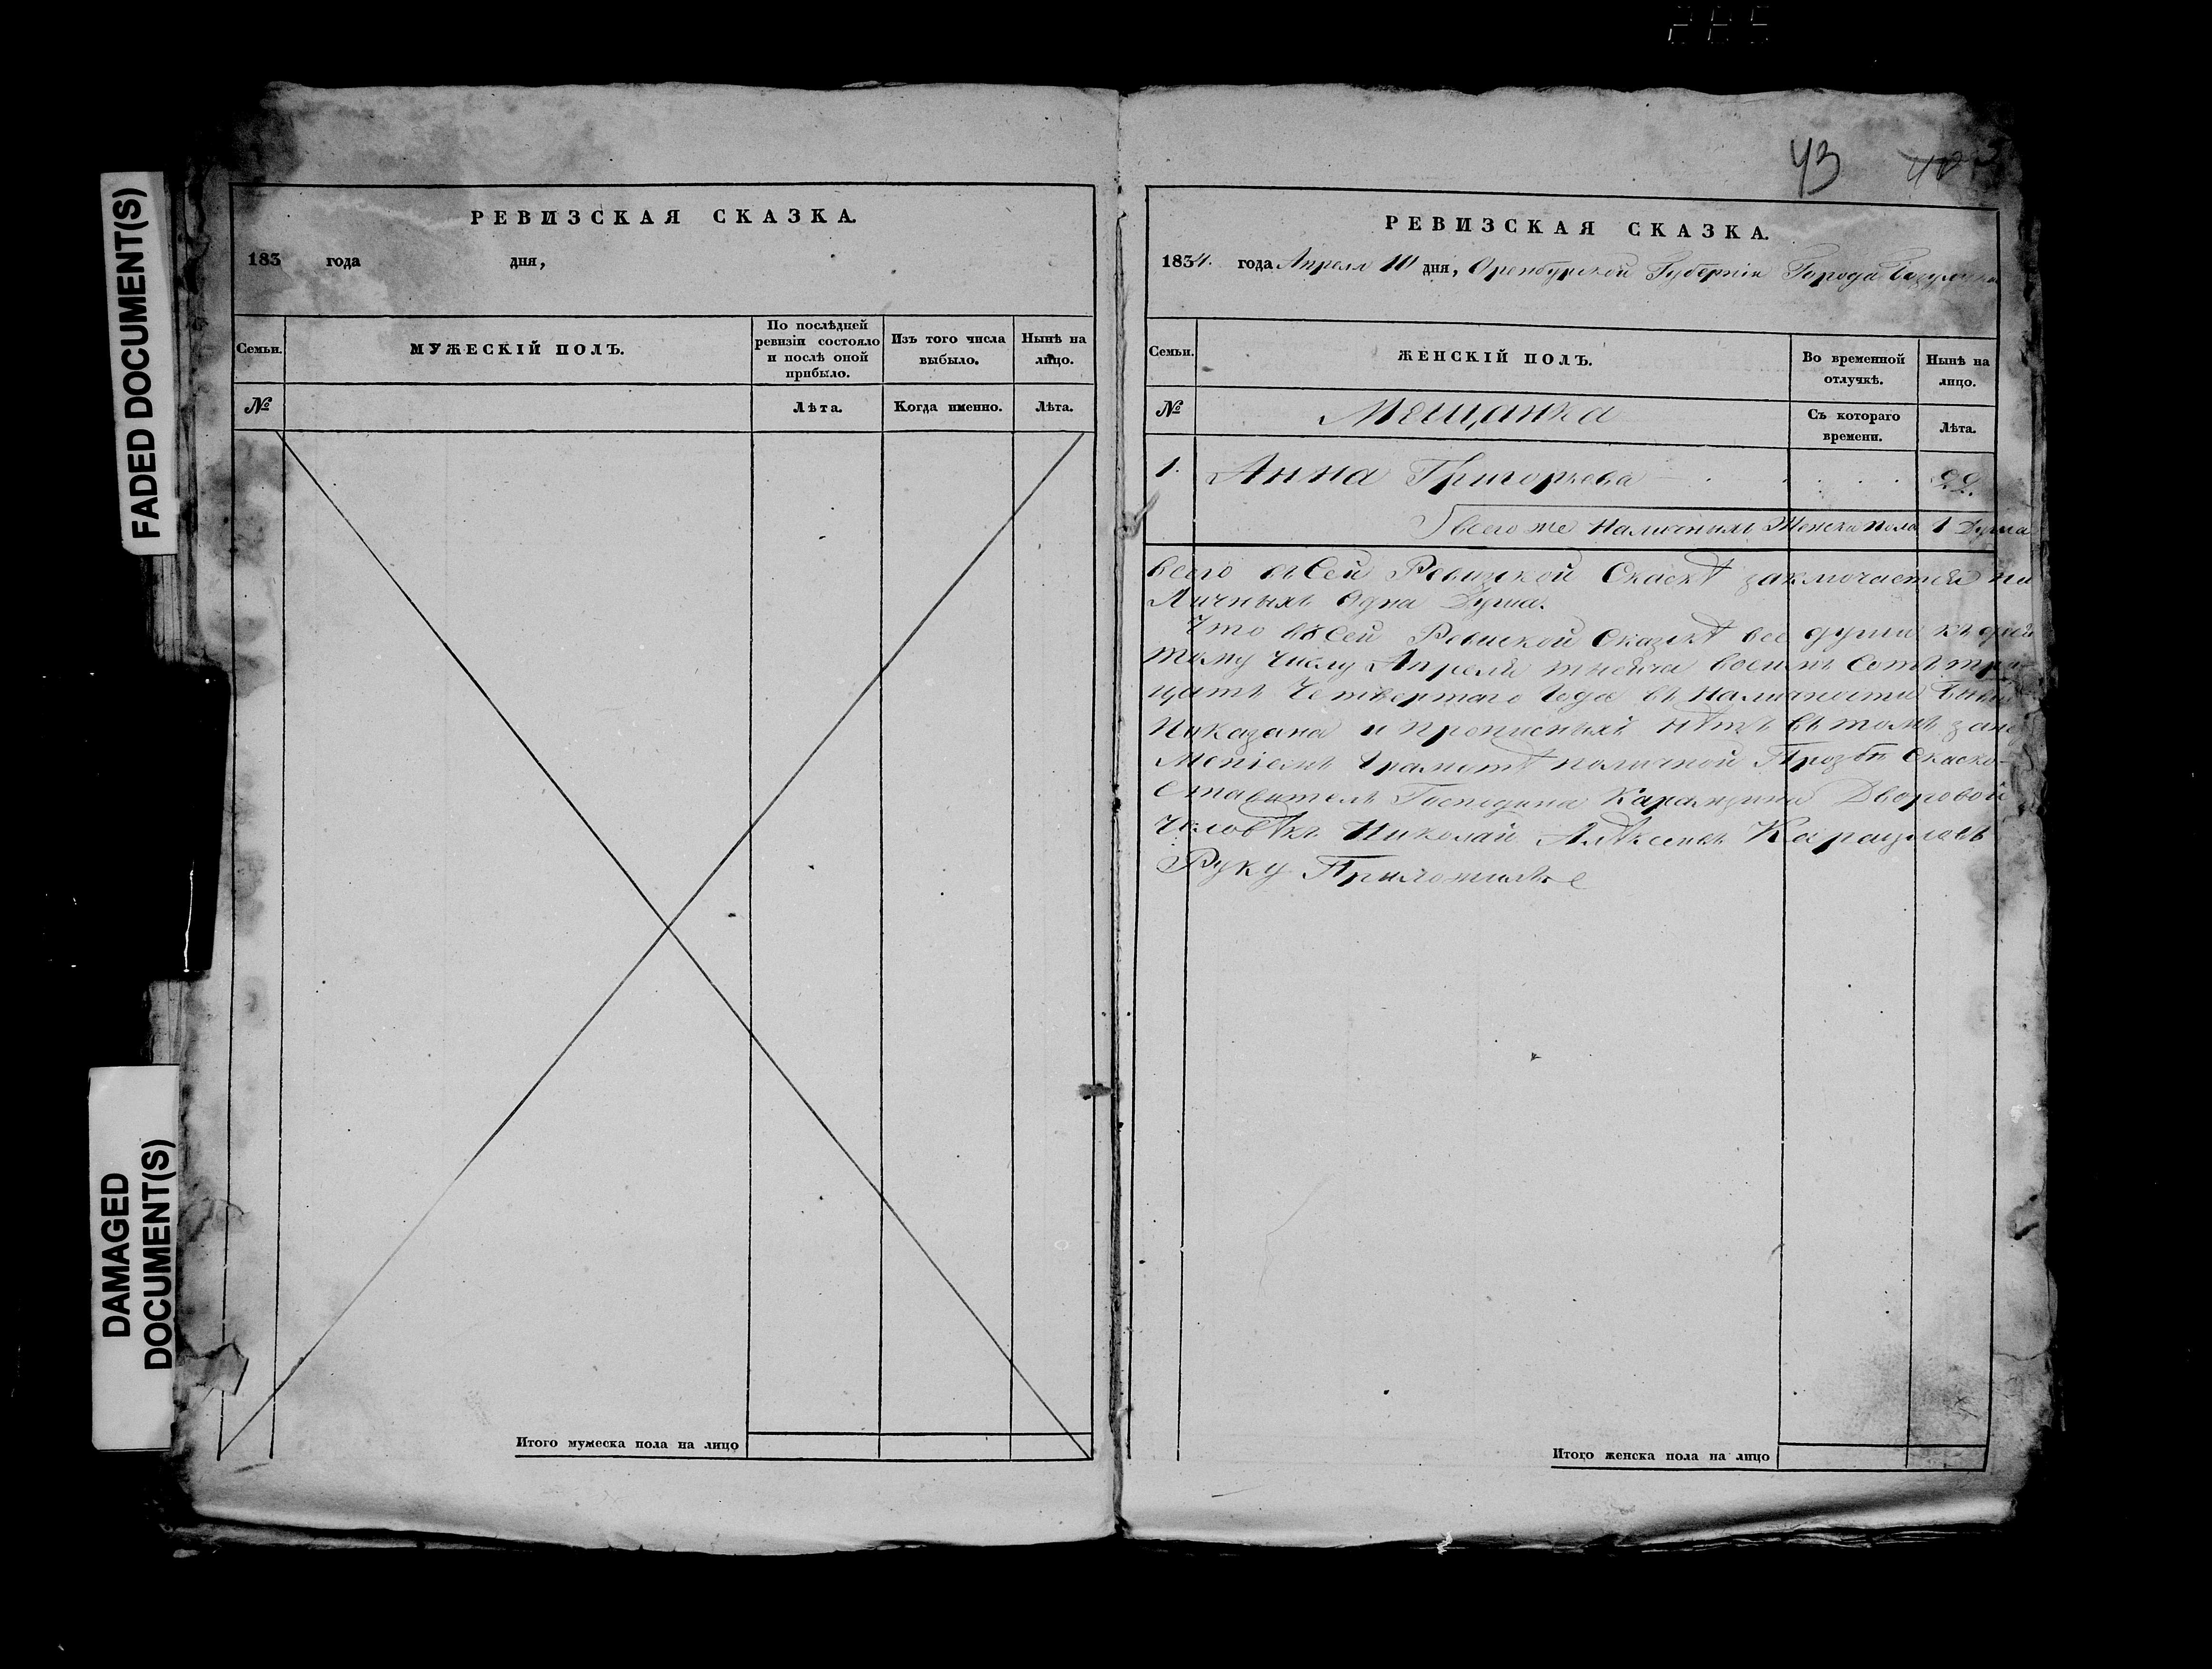 FADED DOCUMENT(S)
DAMAGED
DOCUMENT(S)
РЕВИЗСКАЯ СКАЗКА.
183 года дня,
Семьи.
МУЖЕСКІЙ ПОЛЪ.
По послѣдней
ревизіи состояло
и послѣ оной
прибыло.
Изъ того числа
выбыло.
Нынѣ на
лицо.
№
Лѣта.
Когда именно.
Лѣта.
Итого мужеска пола на лицо
43
РЕВИЗСКАЯ СКАЗКА.
1834. года Апреля 10 дня, Оренбурской Губерніи Города
Семьи.
ЖЕНСКІЙ ПОЛЪ.
Во временной
отлучкѣ.
Нынѣ на
лицо.
№
Мещанка
Съ котораго
времени.
Лѣта.
1. Анна Григорьева 22.
Всего же Наличныхъ Женска пола 1 Душа
всего въ Сей Ревизкой Скаскѣ заключается на
Личныхъ Одна Душа.
Что въ Сей Ревиской Сказкѣ все души къ
тому числу Апреля тысяча восимъ Сотъ три
цать Четвертаго Года въ Наличности
Показана и прописныхъ нѣтъ въ томъ
Мѣніемъ Грамотѣ поличной Прозбѣ Скаско-
Ставителя Господина Дворовой
Человѣкъ Николай Алѣксеивъ
Руку Приложилъ
Итого женска пола на лицо